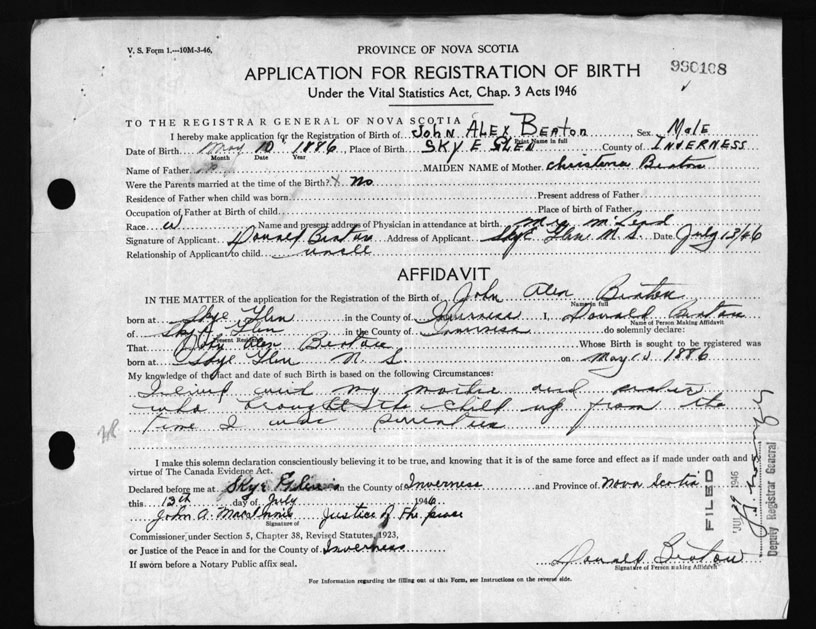 V. S. Form 1.—10M-3-46.
PROVINCE OF NOVA SCOTIA
990108
APPLICATION FOR REGISTRATION OF BIRTH
Under the Vital Statistics Act, Chap. 3 Acts 1946
TO THE REGISTRAR GENERAL OF NOVA SCOTIA
I hereby make application for the Registration of Birth of John Alex Beaton Sex Male
Print Name in full
Date of Birth May 10 1886 Place of Birth Skye Glen County of Inverness
Month Date Year
Name of Father MAIDEN NAME of Mother Beaton
Were the Parents married at the time of the Birth? No
Residence of Father when child was born Present address of Father
Occupation of Father at Birth of child Place of birth of Father
Race W Name and present address of Physician in attendance at birth Mrs McLeod
Signature of Applicant Donald Beaton Address of Applicant Skye Glen N. S. Date July 13/46
Relationship of Applicant to child uncle
AFFIDAVIT
IN THE MATTER of the application for the Registration of the Birth of John Alex Beaton
Name in full
born at Skye Glen in the County of Inverness I, Donald Beaton
Name of Person Making Affidavit
of Skye Glen in the County of Inverness do solemnly declare:
Present Residence
That John Alex Beaton Whose Birth is sought to be registered was
born at Skye Glen N S on May 1886
My knowledge of the fact and date of such Birth is based on the following Circumstances:
I lived with my mother and
who brought the child up from the
time I was
I make this solemn declaration conscientiously believing it to be true, and knowing that it is of the same force and effect as if made under oath and in
virtue of The Canada Evidence Act.
Declared before me at Skye Glen in the County of Inverness and Province of Nova Scotia
this 13th day of July 1946
John A. Justice of the peace
Signature of
Commissioner under Section 5, Chapter 38, Revised Statutes, 1923,
or Justice of the Peace in and for the County of Inverness
If sworn before a Notary Public affix seal.
Donald Beaton
Signature of Person Making Affidavit
For Information regarding the filling out of this Form, see Instructions on the reverse side.
FILED
JUL 1946
Deputy Registrar General